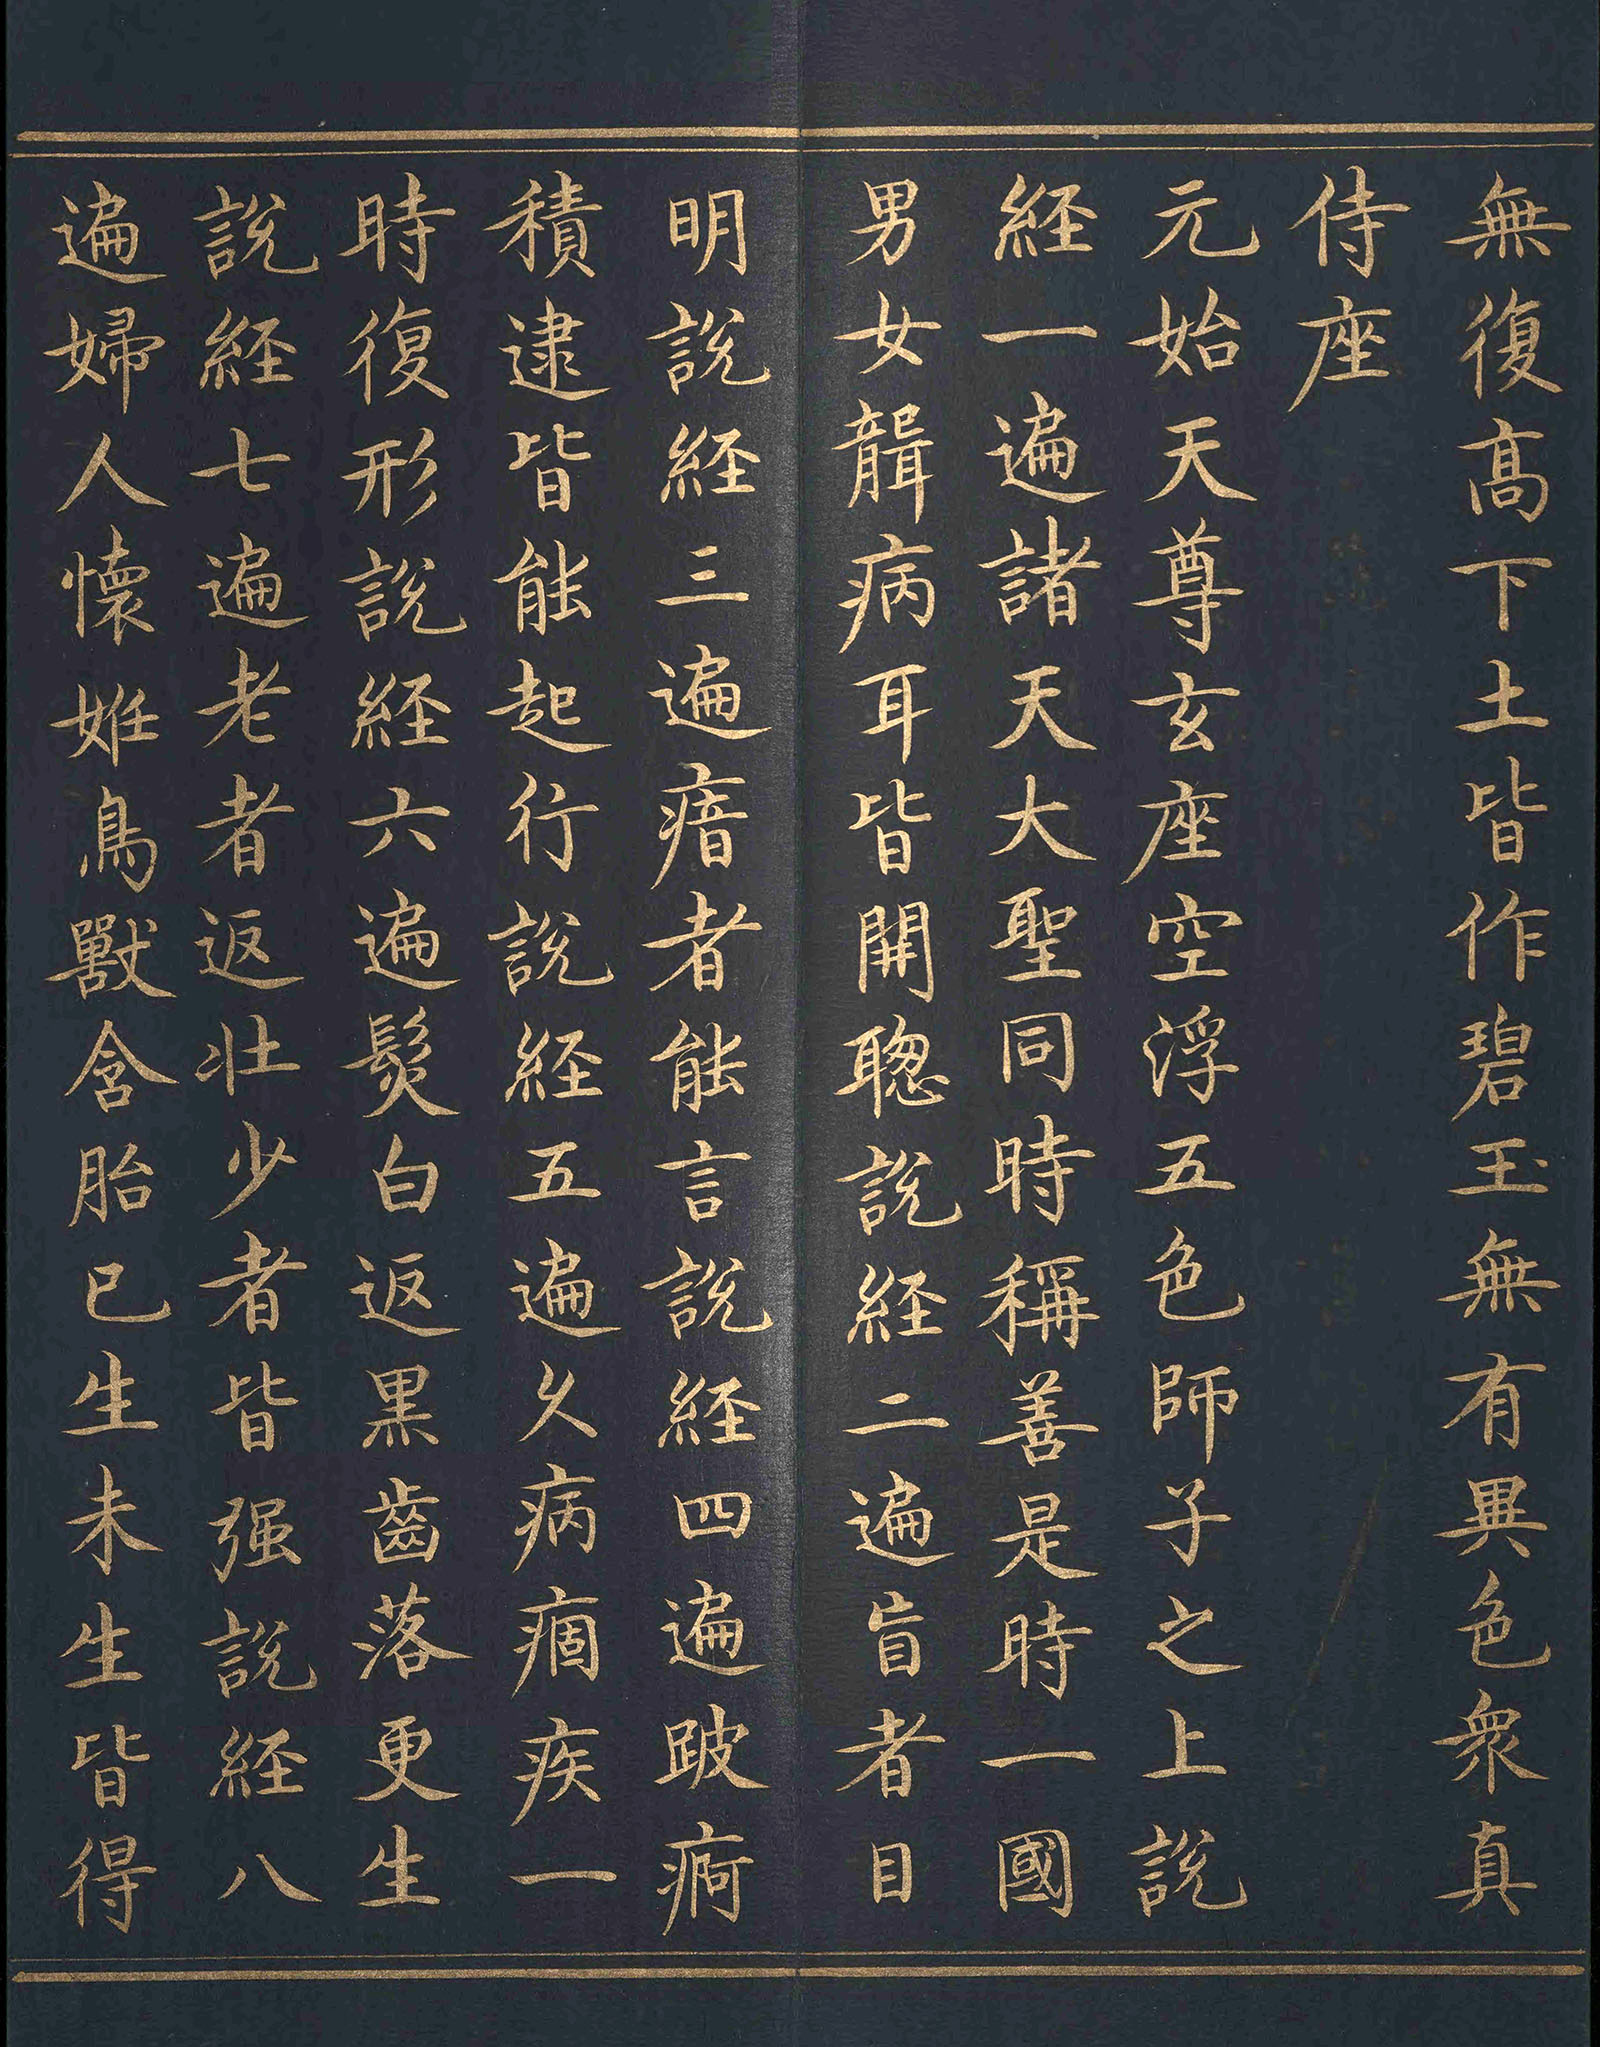 無復髙下土皆作碧玉無有異色衆真
侍座
元始天尊玄座空浮五色師子之上說
經一遍諸天大聖同時稱善是時一國
男女聾病耳皆開聰說經二遍盲者目
明說經三遍瘖者能言說經四遍跛痾
積逮皆能起行說經五遍久病痼疾一
時復形說經六遍髮白返黑齒落更生
說經七遍老者返壯少者皆强說經八
遍婦人懷妊鳥獸含胎已生未生皆得